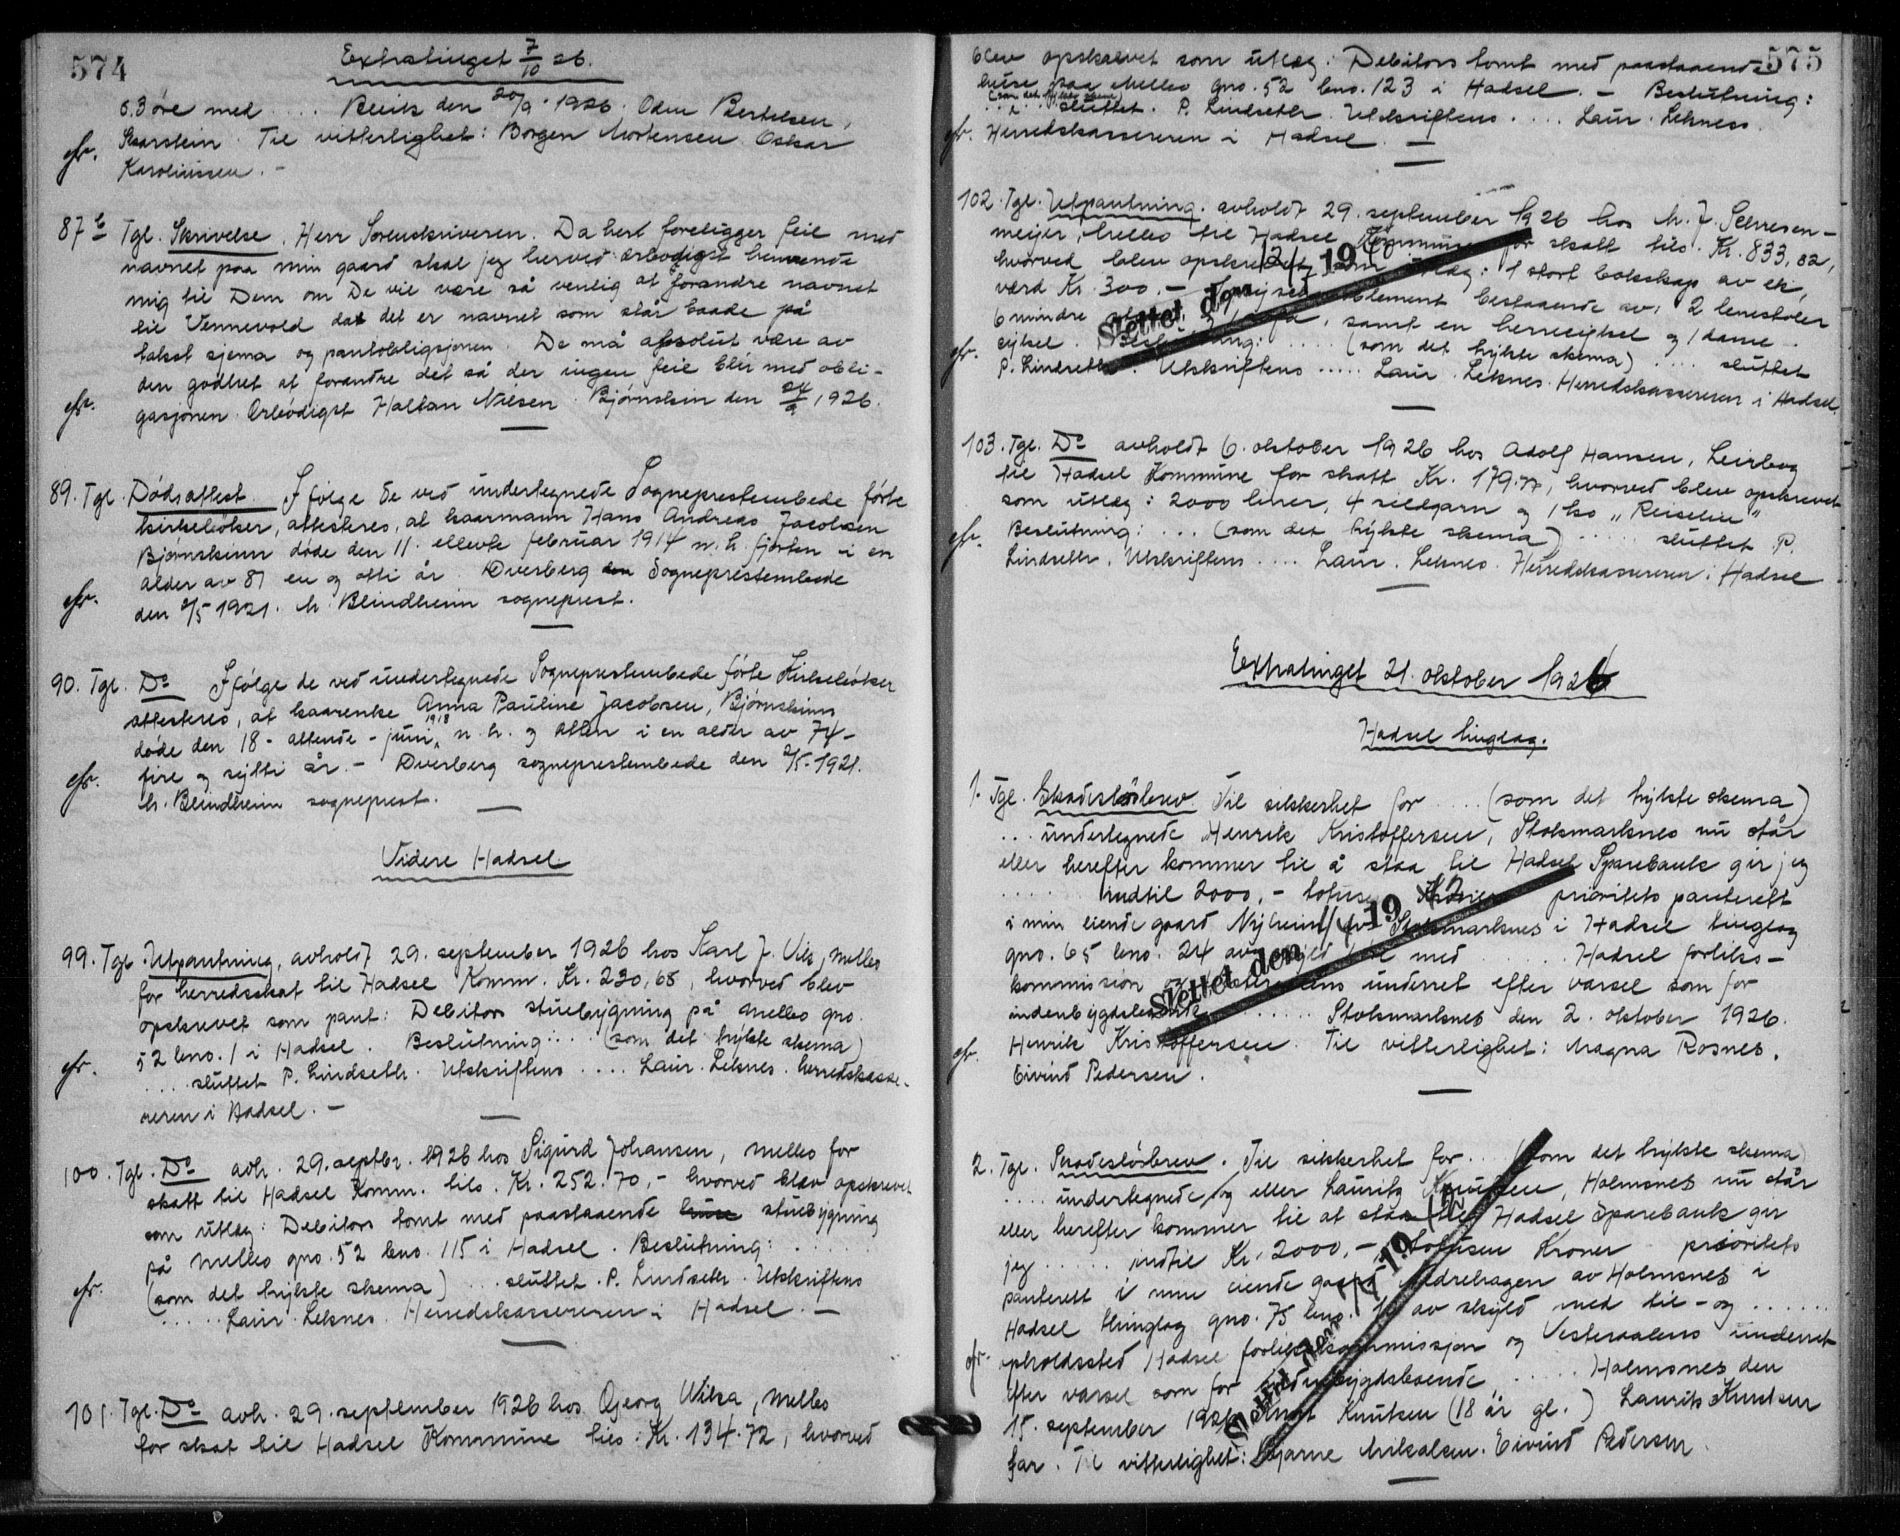 574
Extratinget 7/10 26.
63 øre med ... Bleik den 20/9 1926. Odin Bertelsen,
Skarstein. Til vitterlighet: Borgen Mortensen Oskar
Karoliussen. -
87 b Tgl. Skrivelse. Herr Sorenskriveren. Da hert foreligger feil med
navnet paa min gaard skal jeg herved ærbødigst henvende
mig til Dem om De vil være så venlig at forandre navnet
til Vennevold dat det er navnet som står baade på
takst sjema og pantobligasjonen. De må absolut være av
den godhet at forandre det så der ingen feil blir med obli-
gasjonen. Ærbødigst Halfan Nilsen. Bjørnskin den 24/9 1926.
89. Tgl. Dødsattest. Ifølge de ved undertegnede Sogneprestembede førte
kirkebøker, attesteres, at kaarmann Hans Andreas Jacobsen
Bjørnskinn døde den 11. ellevte februar 1914 n. h. fjorten - i en
alder av 81 en og otti år. Dverberg den Sogneprestembede
den 2/5 1921. M. Blindheim sogneprest.
90. Tgl. Do Ifølge de ved undertegnede Sogneprestembede førte Kirkebøker
attesteres, at kaarenke Anna Pauline Jacobsen, Bjørnskinn
døde den 18 - attende - juni 1918 n. h. og atten i en alder av 74 -
fire og sytti år. - Dverberg sogneprestembede den 2/5 - 1921.
M. Blindheim sogneprest.
Videre Hadsel.
99. Tgl. Utpantning, avholdt 29. september 1926 hos Karl J. Vik, Melbo
for herredsskat til Hadsel Komm. Kr. 230,68, hvorved blev
opskrevet som pant: Debitors stuebygning på Melbo gno.
52 bno. 1 i Hadsel. Beslutning: ... (som det trykte skema)
.... sluttet P. Lindseth. Utskriftens .... Laur. Leknes. herredskasse-
reren i Hadsel. -
100. Tgl. Do avh. 29. septbr. 1926 hos Sigurd Johansen, Melbo for
skatt til Hadsel Komm. tils. Kr. 252.70,- hvorved blev opskrevet
som utlæg: Debitors tomt med paastaaende huse stuebygning
på Melbo gno. 52 bno. 115 i Hadsel. Beslutning: .....
(som det trykte skema) ... sluttet. P. Lindseth. Utskriftens
..... Laur. Leknes. Herredskassereren i Hadsel. -
101. Tgl. Do avh. 29. september 1926 hos Georg Wika, Melbo
for skat til Hadsel Kommune tils: Kr. 134.72, hvorved
575
blev opskrevet som utlæg: Debitors tomt med paastaaende
huse paa Melbo gno. 52 bno. 123 i Hadsel. - Beslutning:
(som det trykte skema)
... sluttet. P. Lindseth. Utskriftens .... Laur. Leknes.
Herredskassereren i Hadsel. -
102. Tgl. Utpantning. avholdt 29. september 1926 hos M. J. Schresen-
meijer, Melbo til Hadsel Kommune for skatt tils. Kr. 833,82,
hvorved blev opskrevet som utlæg: 1 stort bokskap av ek,
værd Kr. 300.- 1 ameublement bestaaende av: 2 lenestoler
6 mindre samt en herresykkel og 1 dame-
sykkel. Beslutning: .... (som det trykte skema) .... sluttet
P. Lindseth. Utskriftens ..... Laur. Leknes. Herredskassereren i Hadsel.
Slettet den 19
103. Tgl. Do avholdt 6. oktober 1926 hos Adolf Hansen, Leirbog
til Hadsel Kommune for skatt Kr. 179.77, hvorved blev opskrevet
som utlæg: 2000 liner, 4 sildgarn og 1 ko "Reiselin"
Beslutning: ... (som det trykte skema) ..... sluttet P.
Lindseth. Utskriftens .... Laur. Leknes. Herredskassereren i Hadsel
Extratinget 21. oktober 1926
Hadsel tinglag.
1. Tgl. Skadesløsbrev. Til sikkerhet for .... (som det trykte skema)
... undertegnede Henrik Kristoffersen, Stokmarknes nu står
eller herefter kommer til å staa til Hadsel Sparebank gir jeg
..... indtil 2000,- totusen Kroner prioritets panterett
i min eiende gaard Nyheim av Stokmarknes i Hadsel tinglag
gno. 65 bno. 24 av skyld med ..... Hadsel forliks-
kommission og Vesteraalens underret efter varsel som for
indenbygdsboende ...... Stokmarknes den 2. oktober 1926.
Henrik Kristoffersen. Til vitterlighet: Magna Rosnes.
Eivind Pedersen.
Slettet den 19
2. Tgl. Skadesløsbrev. Til sikkerhet for ... (som det trykte skema)
.... undertegnede og eller Lauritz Knutsen, Holmsnes nu står
eller herefter kommer til at staa til Hadsel Sparebank gir
jeg ..... indtil Kr. 2000,- totusen Kroner prioritets
panterett i min eiende gaard Nedrehagen av Holmsnes i
Hadsel thinglag gno. 75 bno. av skyld med til - og ......
opholdssted Hadsel forlikskommissjon og Vesteraalens underret
efter varsel som for indenbygdsboende ..... Holmsnes den
15. september 1926. Knut Knutsen (18 år gl.) Laurits Knutsen
far. Til vitterlighet: Bjarne Mikalsen. Eivind Pedersen.
Slettet den 19